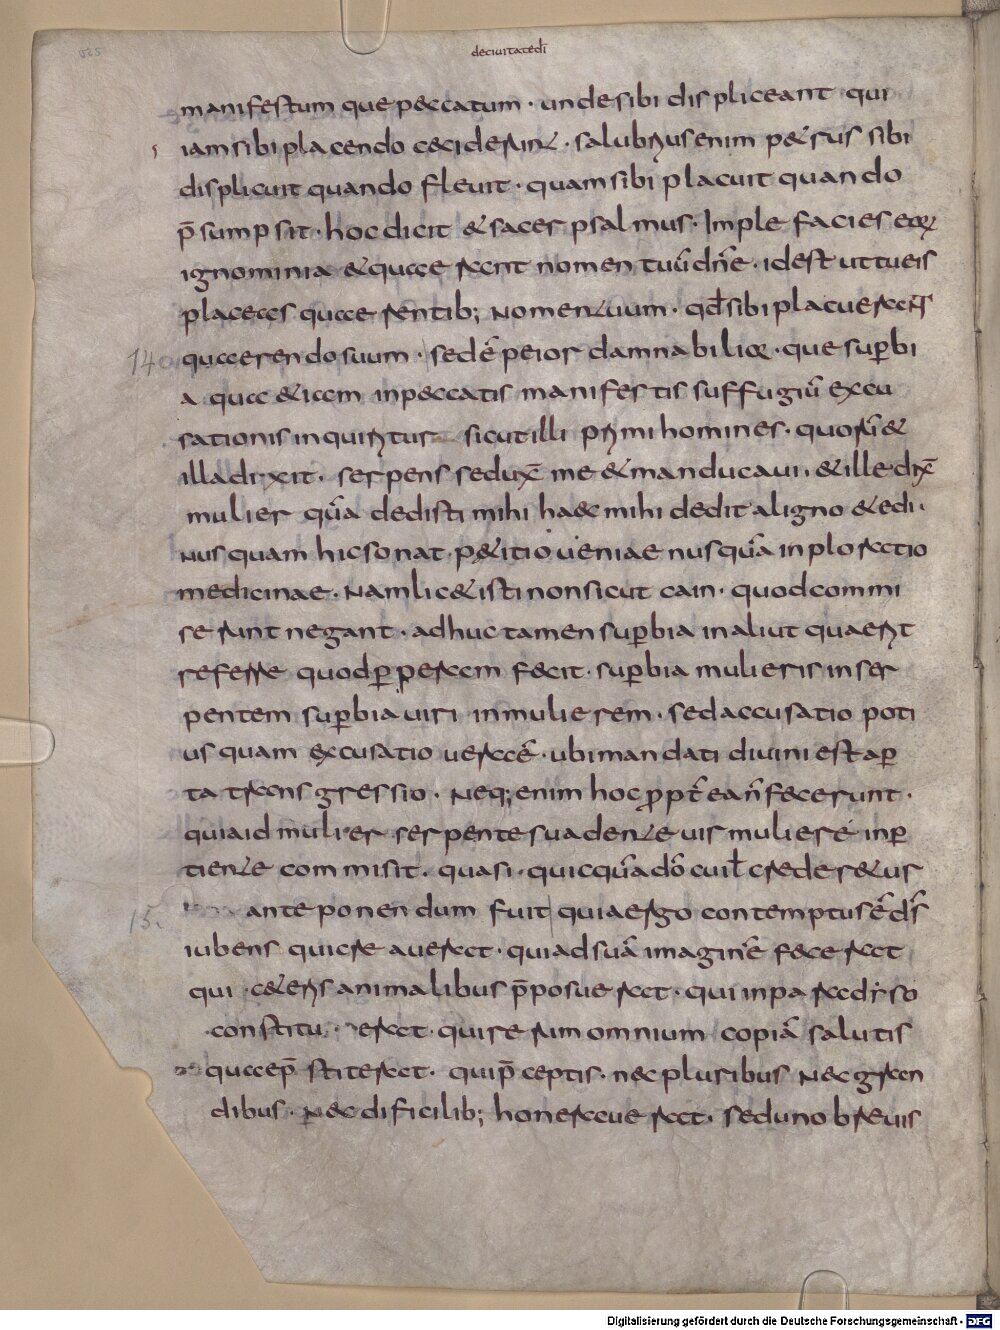 deciuitatedī
manifestum que peccatum · unde sibi displiceant qui
iam sibi placendo ceciderunt · salubrius enim petrus sibi
displicuit quando fleuit · quam sibi placuit quando
p̄sumpsit · hoc dicit & sacer psalmus · Imple facies eorum
ignominia & querent nomen tuū dn̄e · id est ut tu eis
placeas quaerentib; nomen tuum · qd̄ sibi placuerant
140 quaerendo suum · sed ē peior damnabilior que sup̄bi
a qua & iam in peccatis manifestis suffugiū excu
sationis inquiritur sicut illi primi homines · quorū &
illa dixit · serpens sedux̄ me & manducaui · & ille dix̄
mulier quā dedisti mihi haec mihi dedit a ligno & edi ·
nusquam hic sonat · p&itio ueniae nusquā inploratio
medicinae · Nam lic& isti non sicut cain · quod commi
serunt negant · adhuc tamen sup̄bia in aliut quaerit
referre quod p̄peram fecit · sup̄bia mulieris in ser
pentem sup̄bia uiri in mulierem · sed accusatio poti
us quam excusatio uera ē · ubi mandati diuini est ap̄
ta transgressio · Neq; enim hoc propt̄ ea n̄ fecerunt ·
quia id mulier serpente suadente uis mulierē inp̄
tiente commisit · quasi · quicquā dō cui ł crederetur
15. ante ponendum fuit quia ergo contemptus ē ds̄
iubens qui creauerat · qui ad suā imaginē fecerat
qui · c&eris animalibus p̄posuerat · qui in paradiso
constitu erat · qui rerum omnium copiā salutis
quae p̄stiterat · qui p̄ceptis · nec pluribus nec gran
dibus · Nec dificilib; honerauerat · sed uno breuis